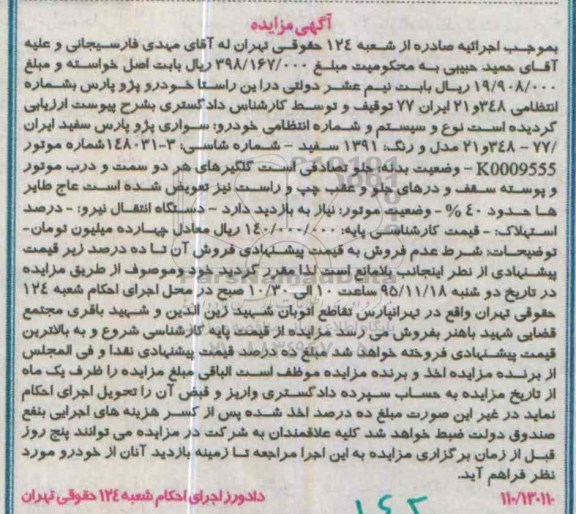 آگهی مزایده
بموجب اجرائیه صادره از شعبه ۱۲۴ حقوقی تهران له آقای مهدی فارسیجانی و علیه
آقای حمید حبیبی به محکومیت مبلغ ۳۹۸/۱۶۷/۰۰۰ ریال بابت اصل خواسته و مبلغ
۱۹/۹۰۸/۰۰۰ ریال بابت نیم عشر دولتی دراین راستا خودرو پژو پارس بشماره
انتظامی ۳۴۸و۲۱ ایران ۷۷ توقیف و توسط کارشناس دادگستری بشرح پیوست ارزیابی
گردیده است نوع و سیستم و شماره انتظامی خودرو: سواری پژو پارس سفید ایران
۷۷/ - ۳۴۸و۲۱ مدل و رنگ: ۱۳۹۱ سفید - شماره شاسی: ۳-۱۴۸۰۳۱شماره موتور
K0009555 - وضعیت بدنه: جلو تصادفی است گلگیرهای هر دو سمت و درب موتور
و پوسته سقف و درهای جلو و عقب چپ و راست نیز تعویض شده است عاج طایر
ها حدود ۴۰ % - وضعیت موتور: نیاز به بازدید دارد - دستگاه انتقال نیرو: - درصد
استهلاک: - قیمت کارشناسی پایه: ۱۴۰/۰۰۰/۰۰۰ ریال معادل چهارده میلیون تومان-
توضیحات: شرط عدم فروش به قیمت پیشنهادی فروش آن تا ده درصد زیر قیمت
پیشنهادی از نطر اینجانب بلامانع است لذا مقرر گردید خود وموصوف از طریق مزایده
در تاریخ دو شنبه ۹۵/۱۱/۱۸ ساعت ۱۰ الی ۱۰/۳۰ صبح در محل اجرای احکام شعبه ۱۲۴
حقوقی تهران واقع در تهرانپارس تقاطع اتوبان شهید زین الدین و شهید باقری مجتمع
قضایی شهید باهنر بفروش می رسد. مزایده از قیمت پایه کارشناسی شروع و به بالاترین
قیمت پیشنهادی فروخته خواهد شد مبلغ ده درصد قیمت پیشنهادی نقدا و فی المجلس
از برنده مزایده اخذ و برنده مزایده موظف است الباقی مبلغ مزایده را ظرف یک ماه
از تاریخ مزایده به حساب سپرده دادگستری واریز و قبض آن را تحویل اجرای احکام
نماید در غیر این صورت مبلغ ده درصد اخذ شده پس از کسر هزینه های اجرایی بنفع
صندوق دولت ضبط خواهد شد کلیه علاقمندان به شرکت در مزایده می توانند پنج روز
قبل از زمان برگزاری مزایده به این اجرا مراجعه تا زمینه بازدید آنان از خودرو مورد
نظر فراهم آید.
۱۱۰/۱۳۰۱۱۰ دادورز اجرای احکام شعبه ۱۲۴ حقوقی تهران